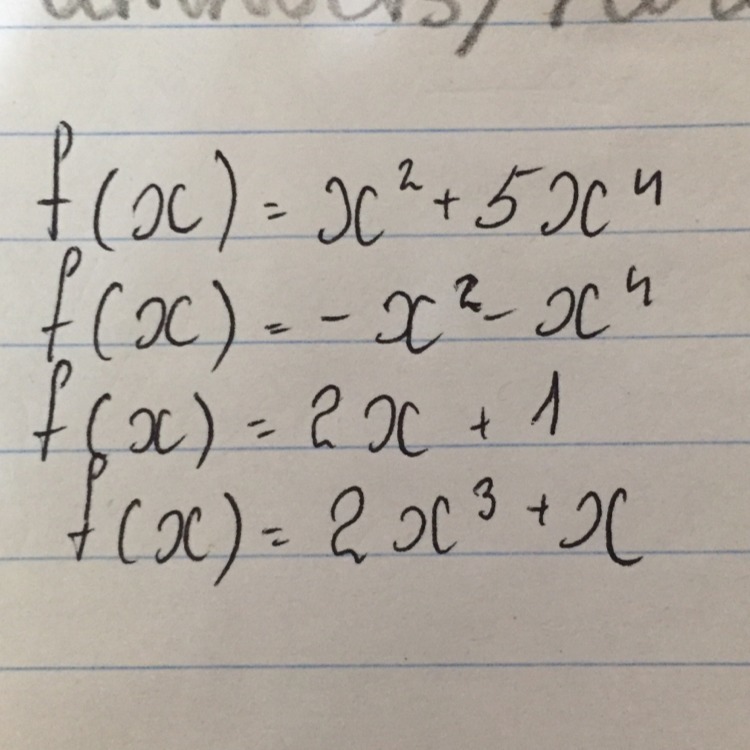 f(x) = x² + 5x⁴
f(x) = - x² - x⁴
f(x) = 2x + 1
f(x) = 2x³ + x